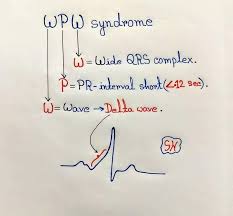 WPW syndrome
W = Wide QRS complex.
P = PR-interval short (<12 sec).
W = Wave → Delta wave.
SN